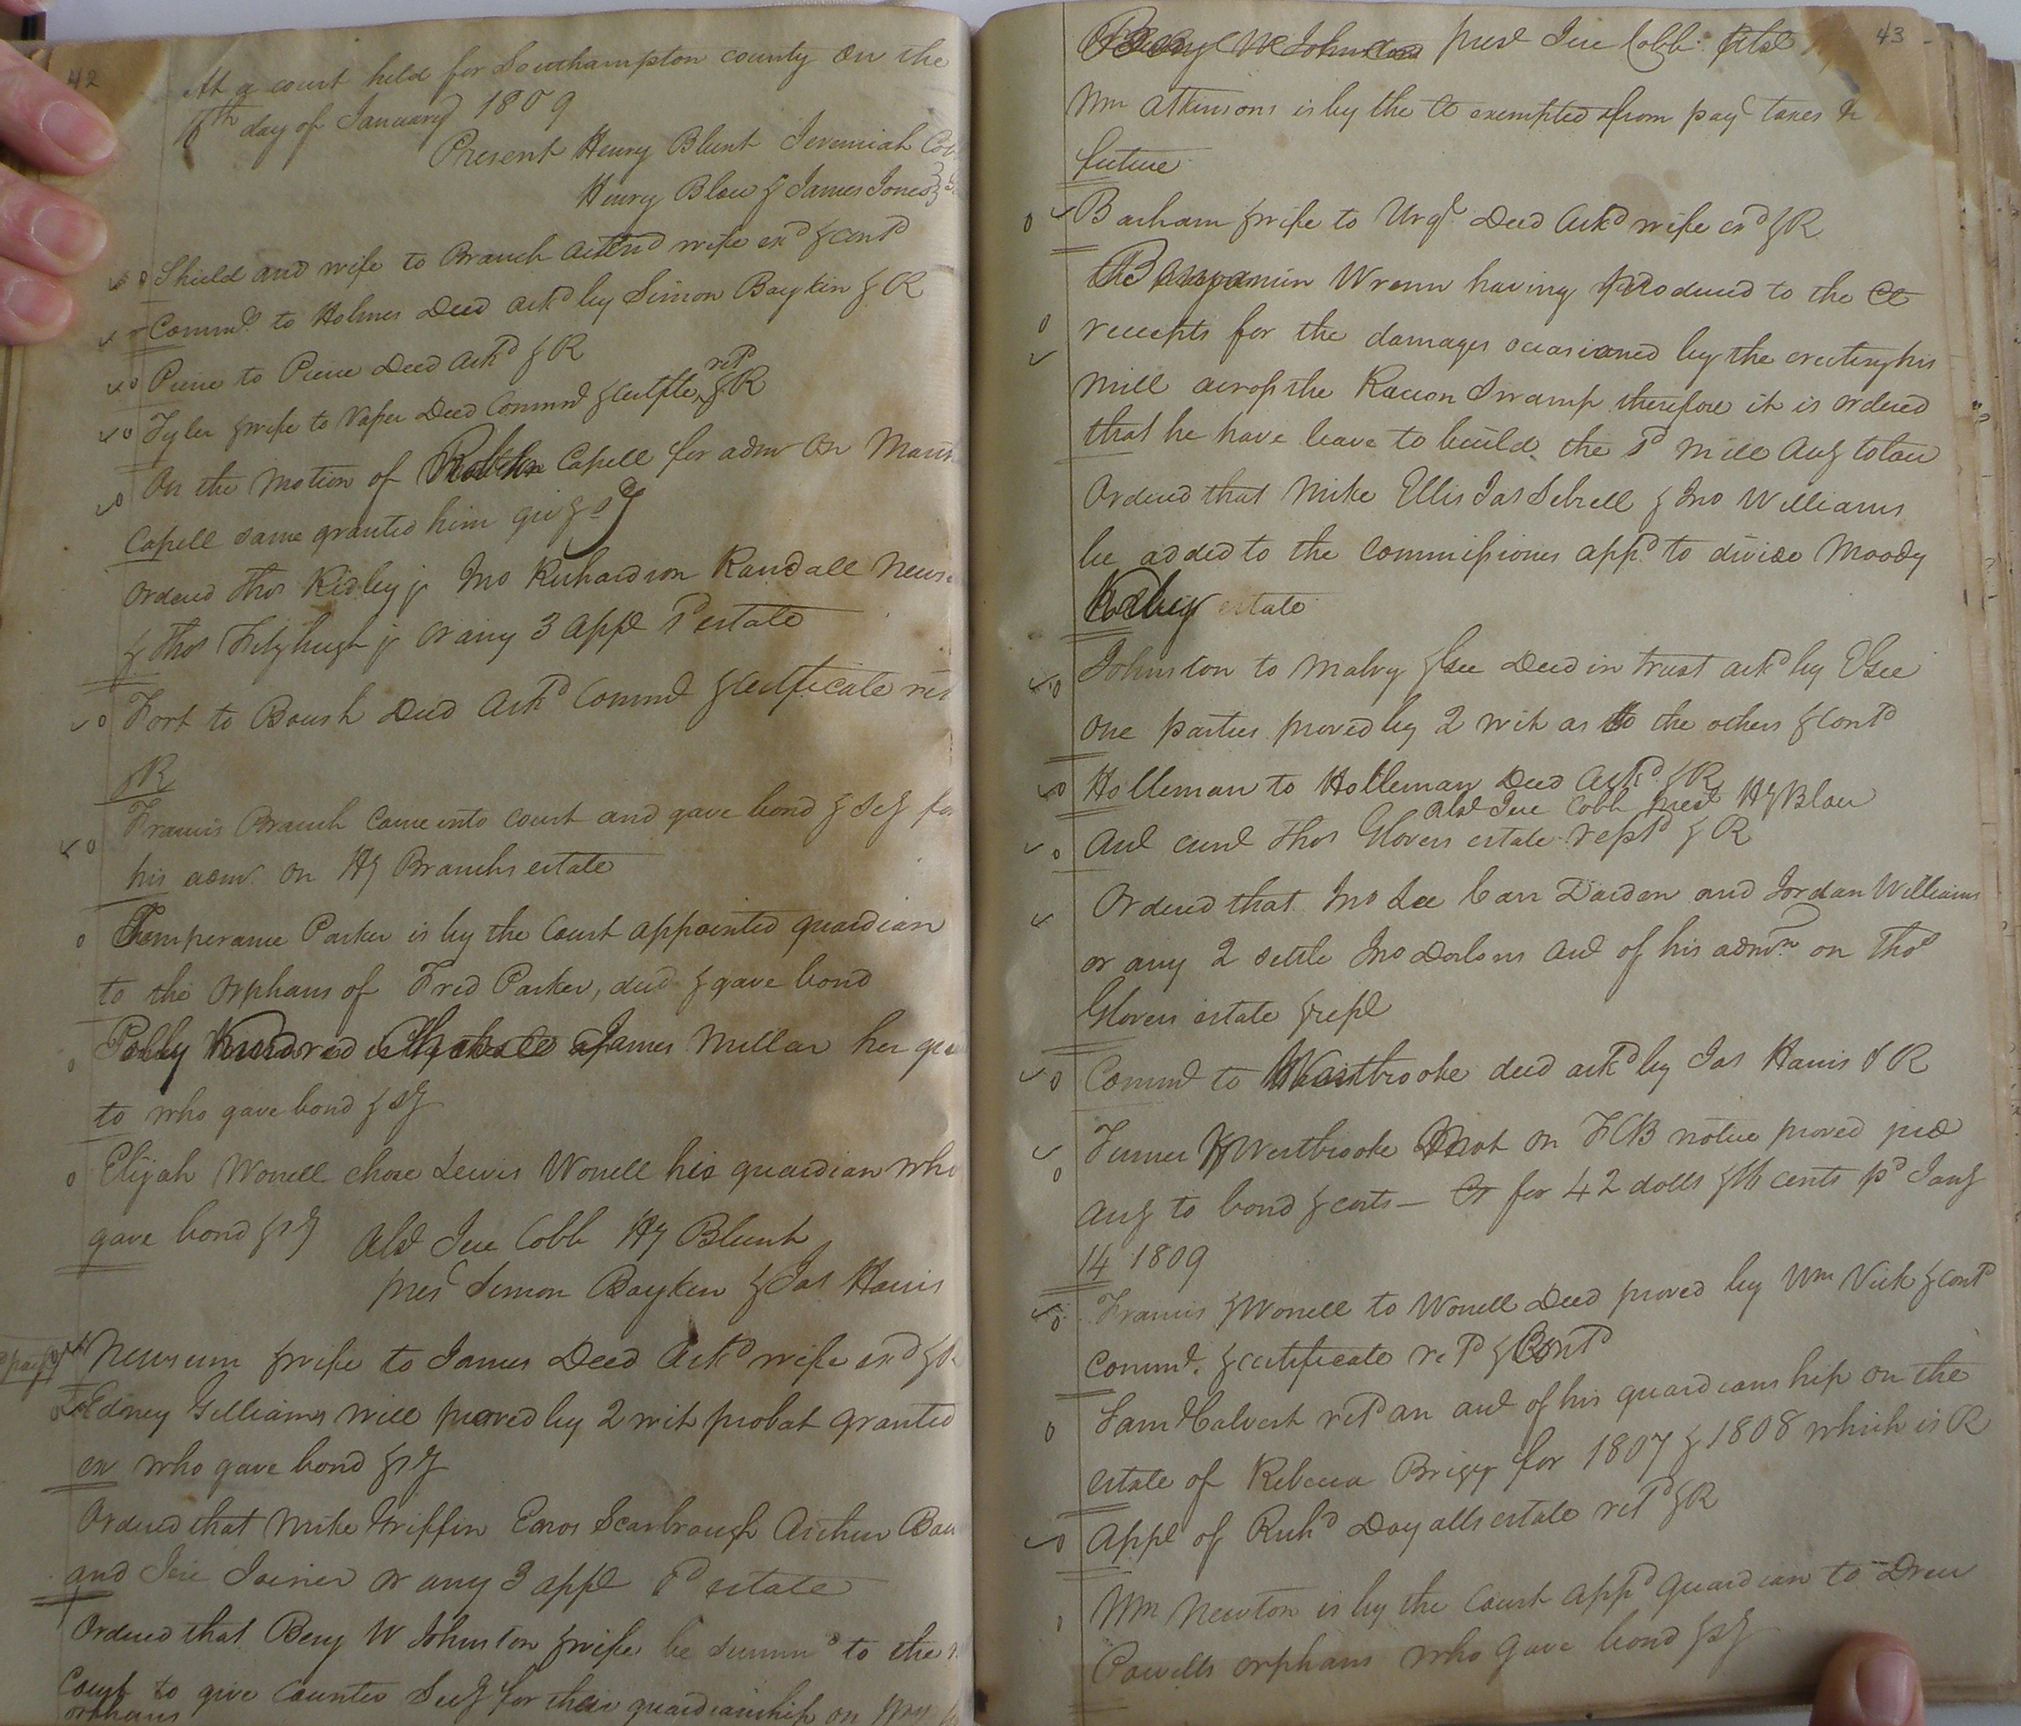 42
At a court held for Southampton county on the
16th day of January 1809
Present Henry Blunt Jeremiah Co
Henry Blow & James Jones
Shield and wife to Branch wife exd & contd
Commrs to Holmes Deed ackd by Simon Boykin & R
Deed ackd & R
Tyler & wife to Vaser Deed Commn & certfte retd & R
On the motion of Capell for admr on
Capell same granted him giv & sy
Ordered Thos Ridley jr Jno Richardson Randall News
& Thos Fitzhugh jr or any 3 appl sd estate
Fort to Boush Deed Ackd Commn & certficate ret
& R
Francis Branch came into court and gave bond & Sey for
his admr. on Hy Branchs estate
Temperance Parker is by the Court appointed guardian
to the orphans of Fred Parker, decd & gave bond
Polly Kindred James Millar her gu
to who gave bond & sy
Elijah Worrell chose Lewis Worrell his guardian who
gave bond & sy
Abst Jere Cobb Hy Blunt
prest Simon Boykin & Jas Harris
Newsum & wife to James Deed Ackd wife exd & R
Edney Gilliams will proved by 2 wit probat granted
ex who gave bond & sy
Ordered that Mike Griffin Enos Scarbrough Arthur
and Jere Joiner or any 3 appl sd estate
Ordered that Benj W Johnston & wife be summd to the
Court to give counter Secy for their guardianship on Wm
orphans
43
W Johnston prest Jere Cobb
Wm Atkinsons is by the Ct exempted from payg taxes in
future
Barham & wife to Urqt Deed Ackd wife exd & R
Benjamin Wrenn having produced to the Ct
receipts for the damages occasioned by the erecting his
mill across the Racoon Swamp therefore it is ordered
that he have leave to build the sd mill Aug to law
Ordered that Mike Ellis Jas Sebrell & Jno Williams
be added to the commissioners appd to divide Moody
estate
Johnston to Malry & Gee Deed in trust ackd by Gee
one parties proved by 2 wit as to the others & contd
Holleman to Holleman Deed Ackd & R
Abst Jere Cobb prest Hy Blow
Aud curnt Thos Glovers estate reptd & R
Ordered that Jno Lee Carr Darden and Jordan Williams
or any 2 settle Jno acct of his admn on Thos
Glovers estate & rept
Commrs to Westbrooke deed ackd by Jas Harris & R
Turner Westbrooke Mot on FCB notice proved
Aug to bond & costs — Ct for 42 dolls & cents pd Jany
14 1809
Francis & Worrell to Worrell Deed proved by Wm Vick & contd
Commn. & certificate retd & Contd
Saml Calvert retd an acct of his guardianship on the
estate of Rebecca Briggs for 1807 & 1808 which is R
Appt of Richd Doyalls estate retd & R
Wm Newton is by the Court appd guardian to Drew
Powells orphans who gave bond & sy